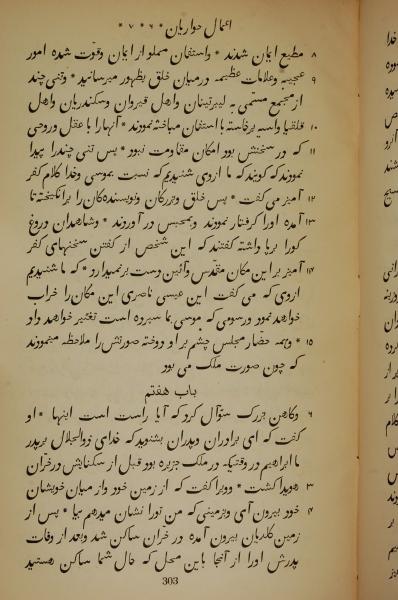 اعمال حواریان * ۶ * ۷ *
۸ مطیع ایمان شدند * واستفان مملو از ایمان وقوت شده امور
۹ عجیبه وعلامات عظیمه در میان خلق بظهور میرسانید * وتنی چند
از مجمع مستمی به لیبرتینان واهل قیروان وسکندریان واهل
۱۰ قلقیا وآسیه برخاسته با استفان مباحثه نمودند * آنها را با عقل وروحی
۱۱ که در سخنش بود امکان مقاومت نبود * پس تنی چند را پیدا
نمودند که گویند که ما از وی شنیدیم که نسبت بموسی وخدا کلام کفر
۱۲ آمیز می گفت * پس خلق وبزرگان ونویسنده کان را برانگیخته تا
۱۳ آمده اورا گرفتار نمودند وبمجلس در آوردند * وشاهدان دروغ
گورا برپا داشته گفتند که این شخص از گفتن سخنهای کفر
۱۴ آمیز بر این مکان مقدّس وآئین دست برنمیدارد * که ما شنیدیم
از وی که می گفت این عیسی ناصری این مکان را خراب
خواهد نمود ورسومی که موسی بما سپرده است تغییر خواهد داد
۱۵ * وهمه حضار مجلس چشم بر او دوخته صورتش را ملاحظه مینمودند
که چون صورت ملک می بود
باب هفتم
۶ وکاهن بزرگ سئوال کرد که آیا راست است اینها * او
گفت که ای برادران وپدران بشنوید که خدای ذوالجلال بر پدر
ما ابراهیم در وقتیکه در ملک جزیره بود قبل از سکنایش در خران
۳ هویدا گشت * وویرا گفت که از زمین خود واز میان خویشان
۴ خود بیرون آی وبزمینی که من تورا نشان میدهم بیا * پس از
زمین کلدیان بیرون آمده در خران ساکن شد وبعد از وفات
پدرش اورا از آنجا باین محل که حال شما ساکن هستید
303